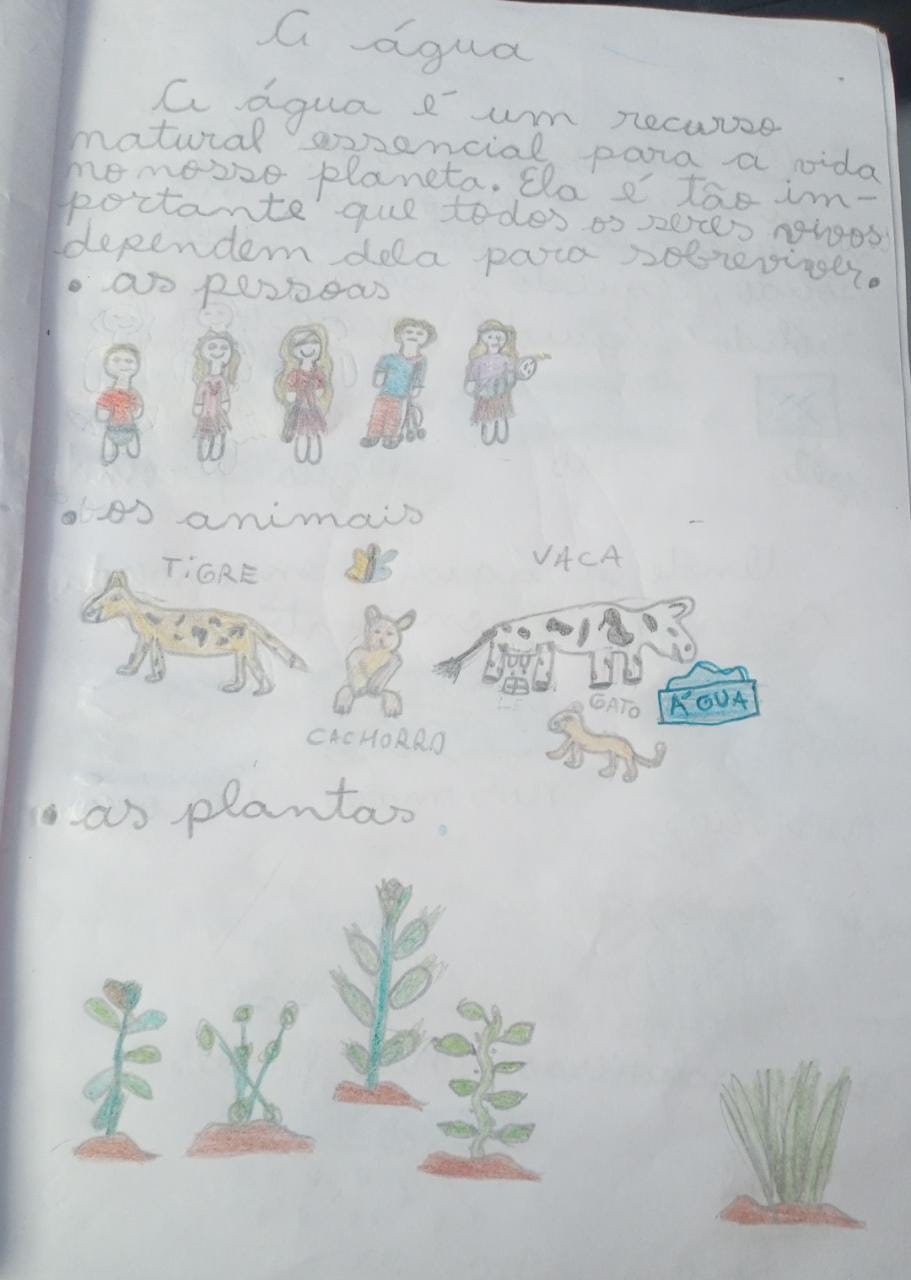 A água
A água é um recurso
natural essencial para a vida
no nosso planeta. Ela é tão im-
portante que todos os seres vivos
dependem dela para sobreviver.
• as pessoas
• os animais
TiGRE
VACA
GATO
ÁGUA
CACHORRO
• as plantas